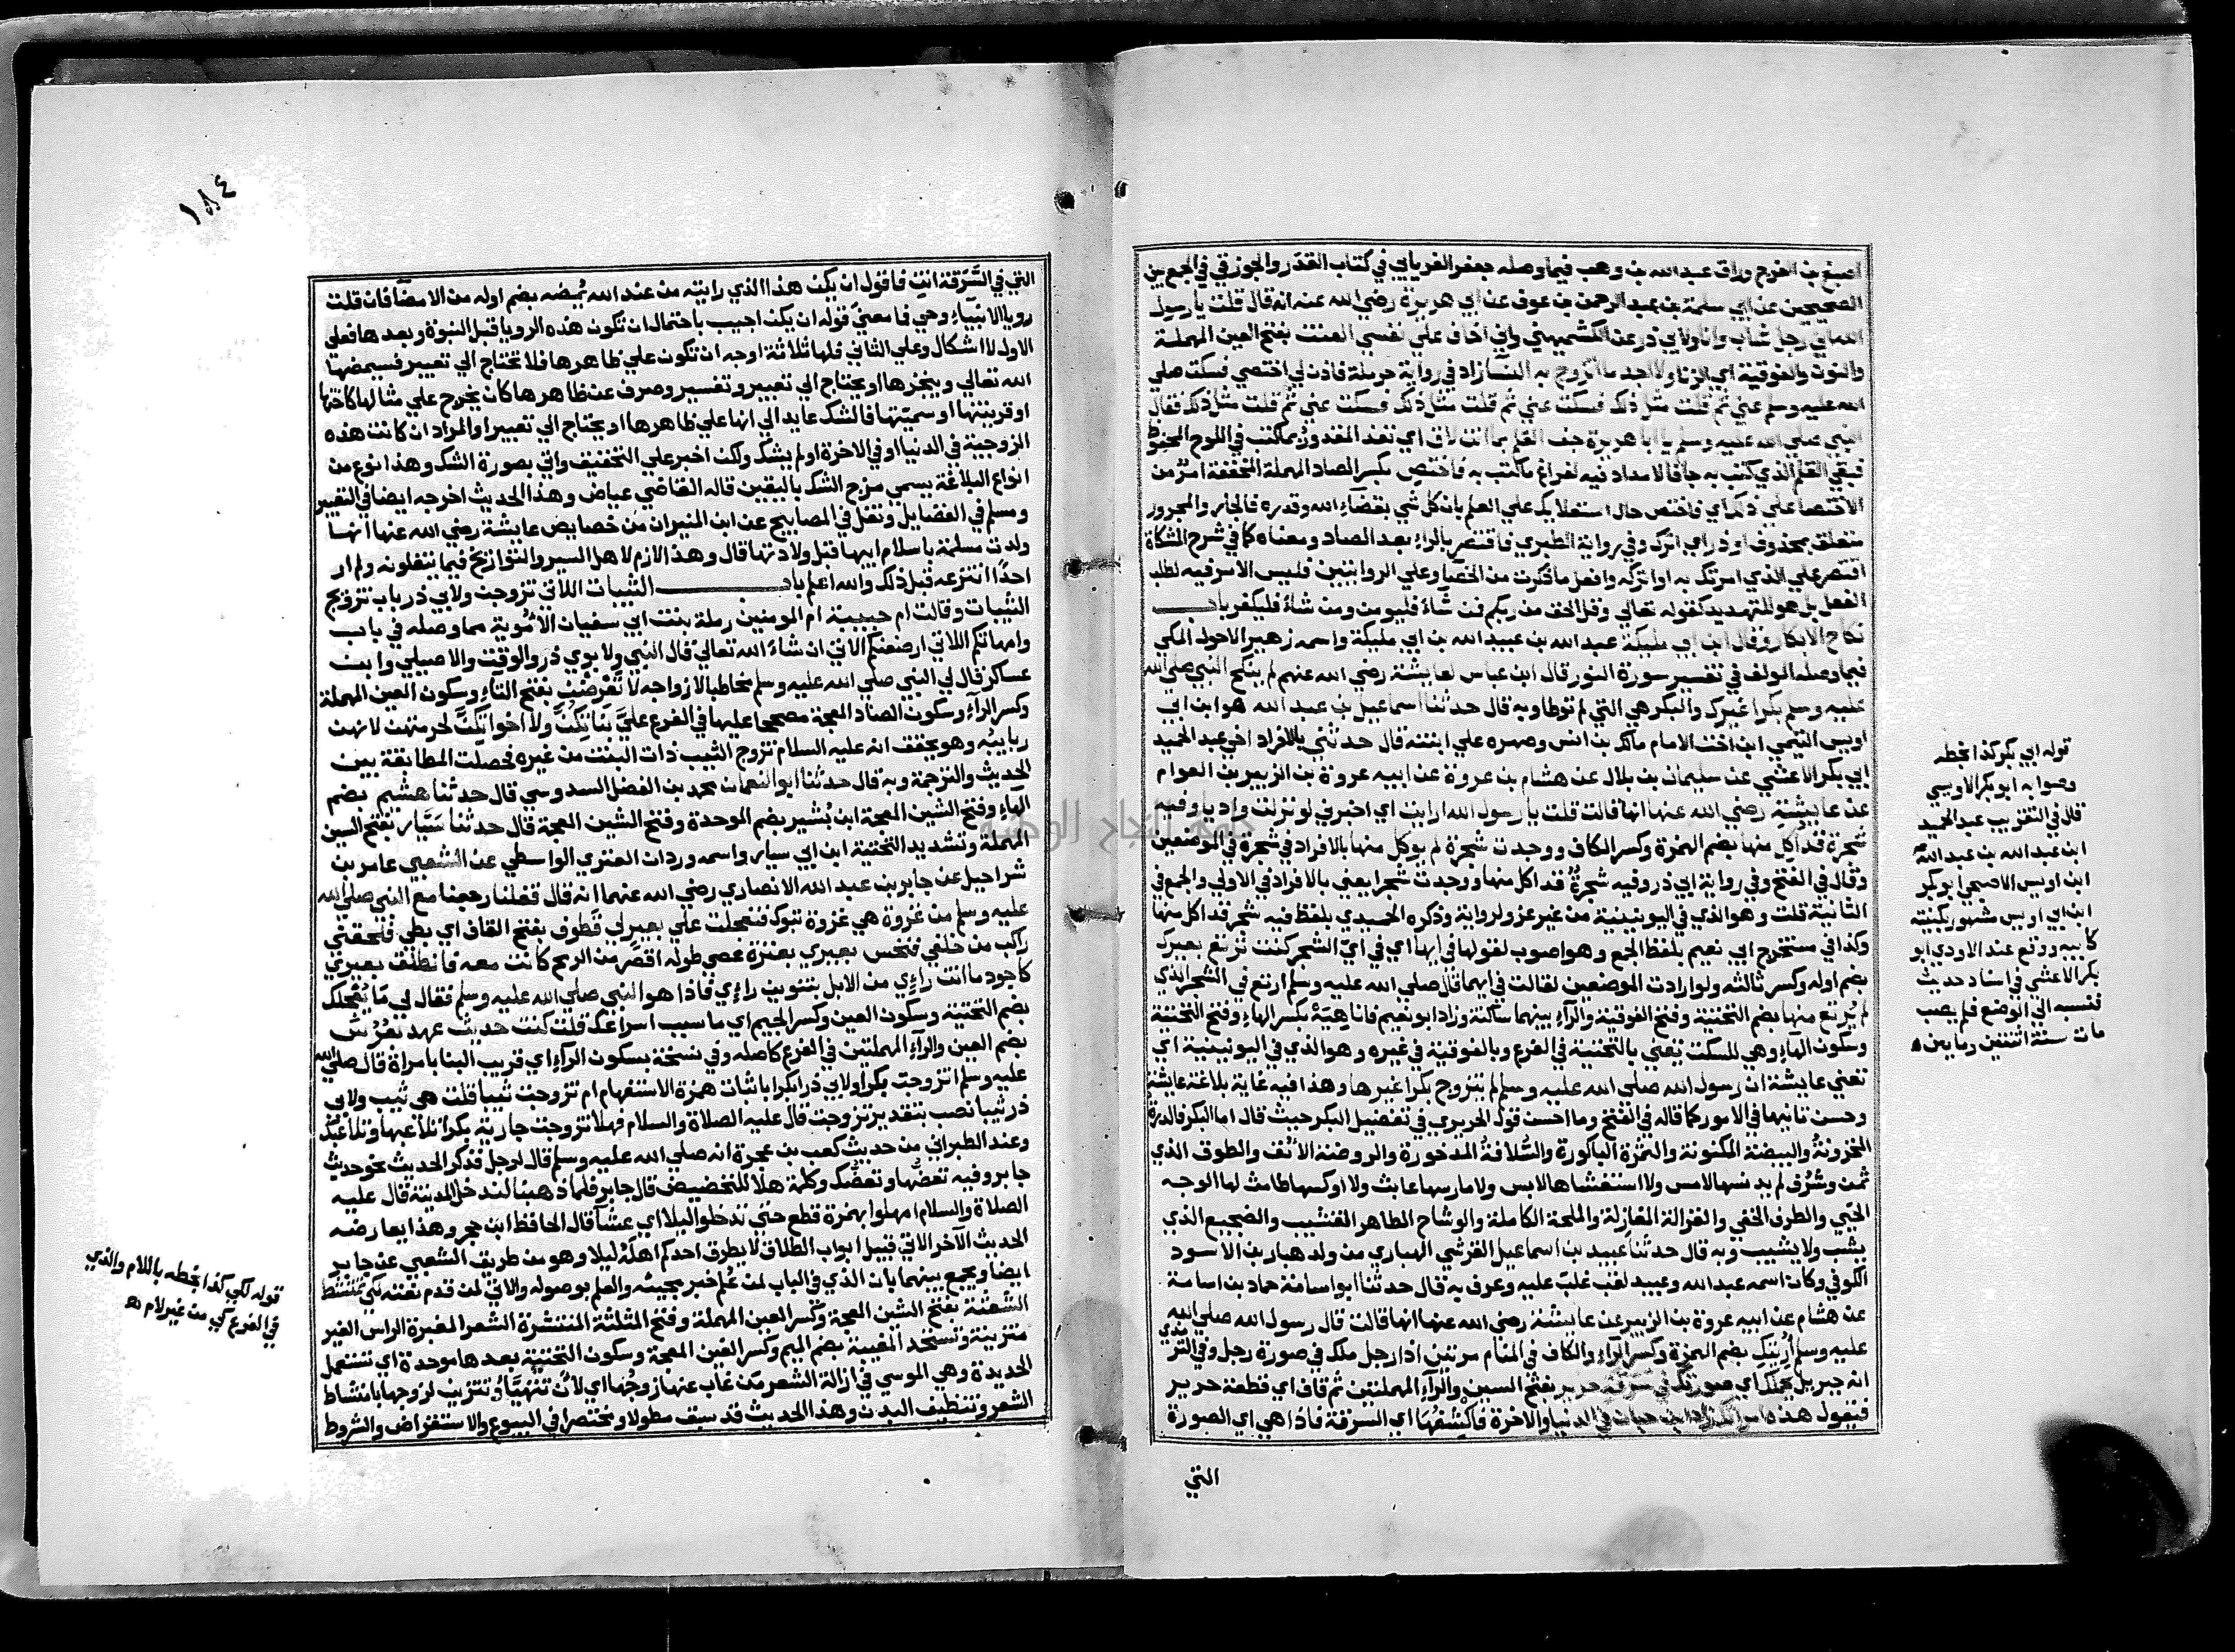 اصبغ بن الفرج وراق عبد الله بن وهب فيما وصله جعفر الفريابي في كتاب القدر والجوزقي في الجمع بين
الصحيحين عن ابي سلمة بن عبد الرحمن بن عوف عن ابي هريرة رضي الله عنه انه قال قلت يا رسول
الله اني رجل شاب وانا ولابي ذر عن الكشميهني واني اخاف علي نفسي العنت بفتح العين المهملة
والنون والفوقية اي الزنا ولا اجد ما اتزوج به النسا زاد في رواية حرملة فاذن لي اختصي فسكت صلي
الله عليه وسلم عني ثم قلت مثل ذلك فسكت عني ثم قلت مثل ذلك فسكت عني ثم قلت مثل ذلك فقال
النبي صلي الله عليه وسلم يا ابا هريرة جف القلم بما انت لاق اي نفذ المقدور بما كتب في اللوح المحفوظ
فبقي القلم الذي كتب به جافا لا مداد فيه لفراغ ما كتب به فاختص بكسر الصاد المهملة المخففة امر من
الاختصا علي ذلك اي فاختص حال استعلايك علي العلم بان كل شي بقضاء الله وقدره فالجار والمجرور
متعلق بمحذوف او ذر اي اترك وفي رواية الطبري فاقتصر بالراء بعد الصاد ومعناه كما في شرح المشكاة
اقتصر علي الذي امرتك به او اتركه وافعل ما ذكرت من الخصا وعلي الروايتين فليس الامر فيه لطلب
الفعل بل هو للتهديد كقوله تعالي وقل الحق من ربكم فمن شاء فليومن ومن شاء فليكفر باب
نكاح الابكار وقال ابن ابي مليكة عبد الله بن عبيد الله بن ابي مليكة واسمه زهير الاحول المكي
فيما وصله المولف في تفسير سورة النور قال ابن عباس لعايشة رضي الله عنهم لم ينكح النبي صلي الله
عليه وسلم بكرا غيرك والبكر هي التي لم توطا وبه قال حدثنا اسماعيل بن عبد الله هو ابن ابي
اويس التيمي ابن اخت الامام مالك بن انس وصهره علي ابنته قال حدثني بالافراد اخي عبد الحميد
ابي بكر الاعشي عن سليمان بن بلال عن هشام بن عروة عن ابيه عروة بن الزبير بن العوام
عن عايشة رضي الله عنها انها قالت قلت يا رسول الله ارايت اي اخبرني لو نزلت واديا وفيه
شجرة قد اكل منها بضم الهمزة وكسر الكاف ووجدت شجرة لم يوكل منها بالافراد في شجرة في الموضعين
وقال في الفتح وفي رواية ابي ذر وفيه شجرة قد اكل منها ووجدت شجرا يعني بالافراد في الاولي والجمع في
الثانية قلت وهو الذي في اليونينية من غير عزو لرواية وذكره الحميدي بلفظ فيه شجر قد اكل منها
وكذا في مستخرج ابي نعيم بلفظ الجمع وهو اصوب لقولها في ايها اي في اي الشجر كنت ترتع بعيرك
بضم اوله وكسر ثالثه ولو ارادت الموضعين لقالت في ايهما قال صلي الله عليه وسلم ارتع في الشجر الذي
لم يرتع منها بضم التحتية وفتح الفوقية والرآء بينهما ساكنة وزاد ابو نعيم فانا هيه بكسر الهاء وفتح التحتية
وسكون الهآء وهي للسكت يعني بالتحتية في الفرع وبالفوقية في غيره وهو الذي في اليونينية اي
تعني عايشة ان رسول الله صلي الله عليه وسلم لم يتزوج بكرا غيرها وهذا فيه غاية بلاغة عايشة
وحسن تانيها في الامور كما قاله في الفتح وما احسن قول الحريري في تفضيل البكر حيث قال اما البكر فالدرة
المخزونة والبيضة المكنونة والثمرة الباكورة والسلافة المدخورة والروضة الانف والطوق الذي
ثمن وشرف لم يدنسها لامس ولا استغشاها لابس ولا مارسها عابث ولا اوكسها طامث لها الوجه
الحيي والطرف الخفي والغزالة المغازلة والملحة الكاملة والوشاح الطاهر القشيب والضجيع الذي
يشب ولا يشيب وبه قال حدثنا عبيد بن اسماعيل القرشي الهباري من ولد هبار بن الاسود
الكوفي وكان اسمه عبد الله وعبيد لقب غلب عليه وعرف به قال حدثنا ابو اسامة حماد بن اسامة
عن هشام عن ابيه عروة بن الزبير عن عايشة رضي الله عنها انها قالت قال رسول الله صلي الله
عليه وسلم اريتك بضم الهمزة وكسر الرآء والكاف في المنام مرتين اذا رجل ملك في صورة رجل وفي الترمذي
انه جبريل يحملك اي صورتك في سرقة حرير بفتح السين والرآء المهملتين ثم قاف اي قطعة حرير
فيقول هذه امراتك زاد ابن حبان في الدنيا والاخرة فاكشفها اي السرقة فاذا هي اي الصورة
التي
قوله ابي بكر كذا بخطه
وصوابه ابو بكر الاويسي
قال في التقريب عبد الحميد
ابن عبد الله بن عبد الله
ابن اويس الاصبحي ابو بكر
ابن ابي اويس مشهور بكنيته
كابيه ووقع عند الازدي ابو
بكر الاعشي في اسناد حديث
فنسبه الي الوضع فلم يصب
مات سنة اثنتين ومايتين
١٨٤
التي في السرقة انت فاقول ان يكن هذا الذي رايته من عند الله يمضه بضم اوله من الامضآ فان قلت
رويا الانبيآء وحي فما معني قوله ان يكن اجيب باحتمال ان تكون هذه الرويا قبل النبوة وبعدها فعلي
الاول لا اشكال وعلي الثاني فلها ثلاثة اوجه ان تكون علي ظاهرها فلا تحتاج الي تعبير فسيمضها
الله تعالي وينجزها او يحتاج الي تعبير وتفسير وصرف عن ظاهرها كان يخرج علي مثالها كاختها
او قرينتها او سميتها فالشك عايد الي انها علي ظاهرها او يحتاج الي تعبير او المراد ان كانت هذه
الزوجية في الدنيا او في الاخرة او لم يشك ولكن اخبر علي التحقيق واتي بصورة الشك وهذا نوع من
انواع البلاغة يسمي مزج الشك باليقين قاله القاضي عياض وهذا الحديث اخرجه ايضا في التعبير
ومسلم في الفضايل ونقل في المصابيح عن ابن المنير ان من خصايص عايشة رضي الله عنها انها
ولدت مسلمة باسلام ابيها قبل ولادتها قال وهذا لازم لاهل السير والتواريخ فيما ينقلونه ولم ار
احدا انتزعه قبل ذلك والله اعلم باب الثيبات اللاتي تزوجت ولابي ذر باب تزويج
الثيبات وقالت ام حبيبة ام المومنين رملة بنت ابي سفيان الاموية مما وصله في باب
وامهاتكم اللاتي ارضعنكم الاتي ان شاء الله تعالي قال النبي ولابوي ذر والوقت والاصيلي وابن
عساكر قال لي النبي صلي الله عليه وسلم مخاطبا لازواجه لا تعرضن بفتح التاء وسكون العين المهملة
وكسر الرآء وسكون الضاد المعجمة مصححا عليها في الفرع علي بناتكن ولا اخواتكن لحرمتهن لانهن
ربايبه وهو يحقق انه عليه السلام تزوج الثيب ذات البنت من غيره فحصلت المطابقة بين
الحديث والترجمة وبه قال حدثنا ابو النعمان محمد بن الفضل السدوسي قال حدثنا هشيم بضم
الهآء وفتح الشين المعجمة ابن بشير بضم الموحدة وفتح الشين المعجمة قال حدثنا سيار بفتح السين
المهملة وتشديد التحتية ابن ابي سيار واسمه وردان العنزي الواسطي عن الشعبي عامر بن
شراحيل عن جابر بن عبد الله الانصاري رضي الله عنهما انه قال قفلنا رجعنا مع النبي صلي الله
عليه وسلم من غزوة هي غزوة تبوك فتعجلت علي بعير لي قطوف بفتح القاف اي بطي فلحقني
راكب من خلفي فنخس بعيري بعنزة عصي طوله اقصر من الرمح كانت معه فانطلق بعيري
كاجود ما انت راءي من الابل بتنوين راءي فاذا هو النبي صلي الله عليه وسلم فقال لي ما يعجلك
بضم التحتية وسكون العين وكسر الجيم اي ما سبب اسراعك قلت كنت حديث عهد بعرس
بضم العين والرآء المهملتين في الفرع كاصله وفي نسخة بسكون الرآء اي قريب البنا بامراة قال صلي الله
عليه وسلم اتزوجت بكرا ولابي ذر ابكرا باثبات همزة الاستفهام ام تزوجت ثيبا قلت هي ثيب ولابي
ذر ثيبا نصب بتقدير تزوجت قال عليه الصلاة والسلام فهلا تزوجت جارية بكرا تلاعبها وتلاعبك
وعند الطبراني من حديث كعب بن عجرة انه صلي الله عليه وسلم قال لرجل فذكر الحديث نحو حديث
جابر وفيه تعضها وتعضك وكلمة هلا للتحضيض قال جابر فلما ذهبنا لندخل المدينة قال عليه
الصلاة والسلام امهلوا بهمزة قطع حتي تدخلوا ليلا اي عشآ قال الحافظ ابن حجر وهذا يعارضه
الحديث الآخر الاتي قبيل ابواب الطلاق لا يطرق احدكم اهله ليلا وهو من طريق الشعبي عن جابر
ايضا ويجمع بينهما بان الذي في الباب لمن علم خبر مجيئه والعلم بوصوله والاتي لمن قدم بغتة لكي تمتشط
الشعثة بفتح الشين المعجمة وكسر العين المهملة وفتح المثلثة المنتشرة الشعر المغبرة الراس الغير
متزينة وتستحد المغيبة بضم الميم وكسر الغين المعجمة وسكون التحتية بعدها موحدة اي تستعمل
الحديدة وهي الموسي في ازالة الشعر من غاب عنها زوجها اي لان تتهيأ وتتزين لزوجها بامتشاط
الشعر وتنظيف البدن وهذا الحديث قد سبق مطولا ومختصرا في البيوع والاستقراض والشروط
قوله لكي كذا بخطه باللام والذي
في الفرع كي من غير لام
جامعة النجاح الوطنية